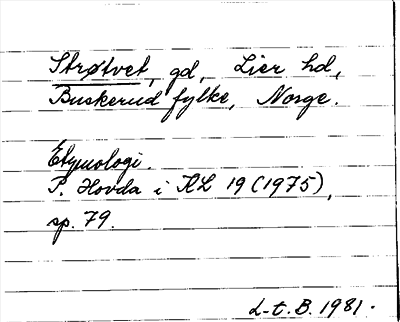 Strøtvet, gd, Lier hd,
Buskerud fylke, Norge.
Etymologi.
P. Hovda i KL 19 (1975),
sp. 79.
L-t. B. 1981.